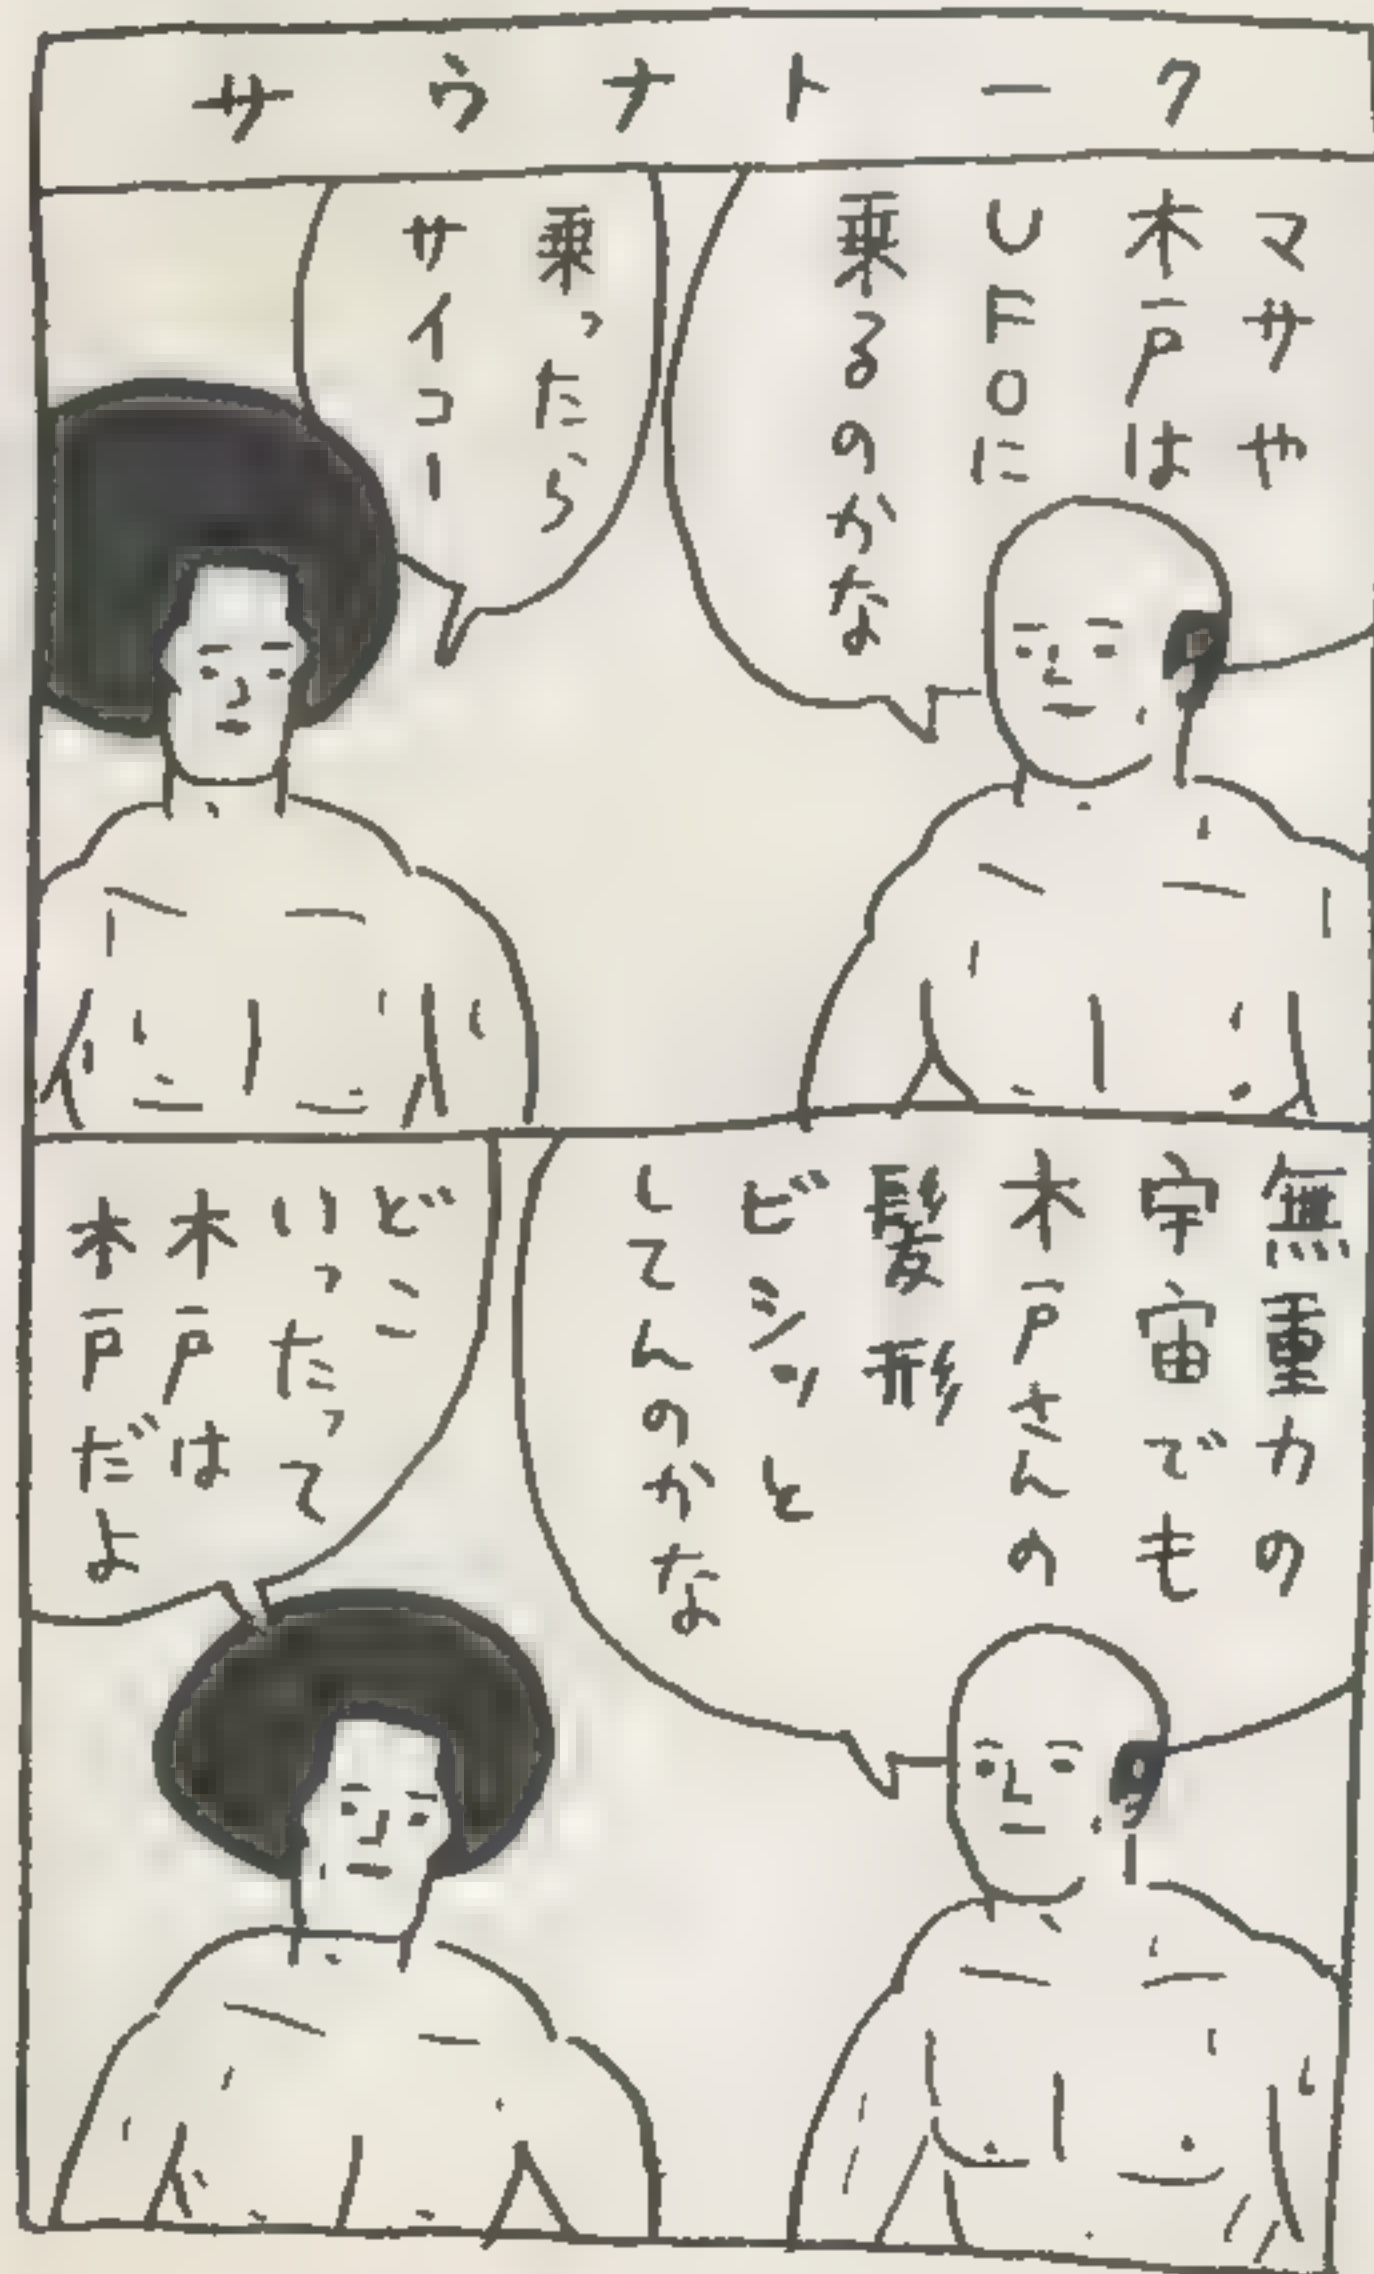 サウナトーク
マサや
木戸は
UFOに
乗るのかな
乗ったら
サイコー
無重力の
宇宙でも
木戸さんの
髪形
ビシッと
してんのかな
どこ
いったって
木戸は
木戸だよ